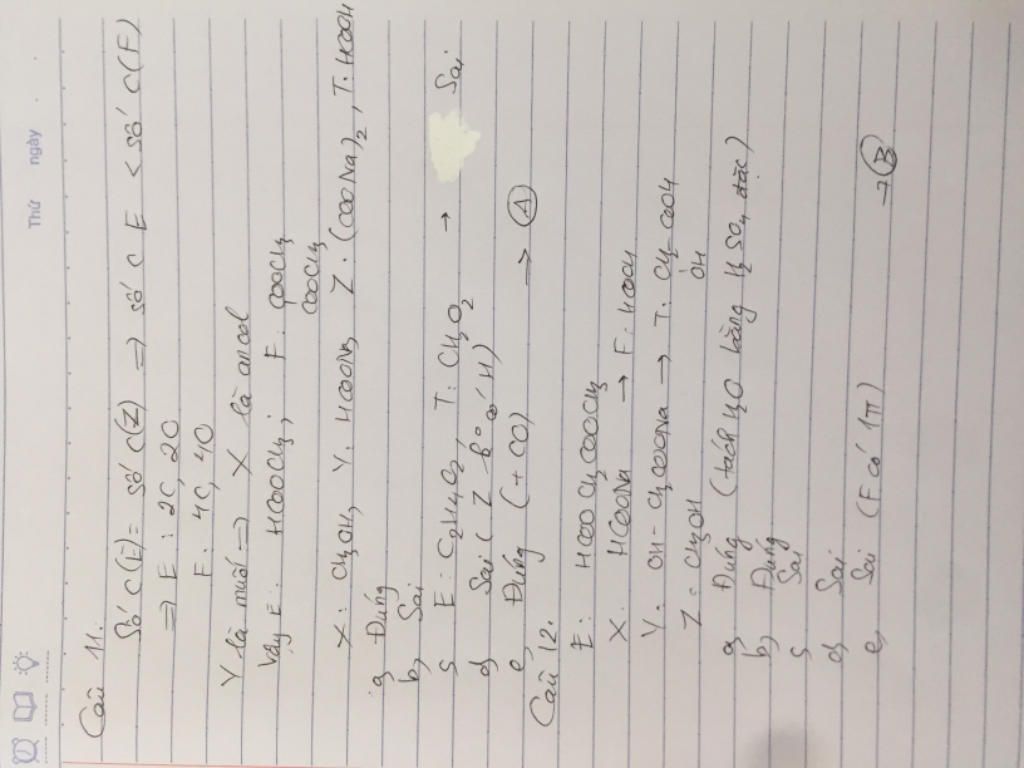 Thứ ngày
Câu 11.
Số C(E) = số C(Z) ⇒ số C E < số C(F)
⇒ E : 2C, 2O
F : 4C, 4O
Y là muối ⇒ X là ancol
Vậy E : HCOOCH3 ; F : COOCH3
COOCH3
X : CH3OH, Y : HCOONa, Z : (COONa)2, T : HCOOH
a, Đúng
b, Sai
c, E : C2H4O2, T : CH2O2 → Sai
d, Sai (Z ko có H)
e, Đúng (+ CO) → (A)
Câu 12.
E : HCOOCH2COOCH3
X : HCOONa → F : HCOOH
Y : OH-CH2COONa → T : CH2-COOH
OH
Z : CH3OH
a, Đúng (tách H2O bằng H2SO4 đặc)
b, Đúng
c, Sai
d, Sai
e, Sai (F có 1π) → (B)